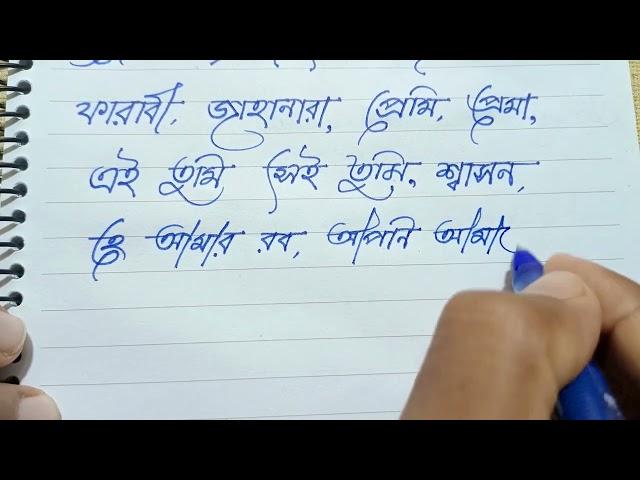 ফারাবী, জাহানারা, প্রেমি, প্রেমা,
এই তুমি সেই তুমি, শ্বাসন,
হে আমার রব, আপনি আমা